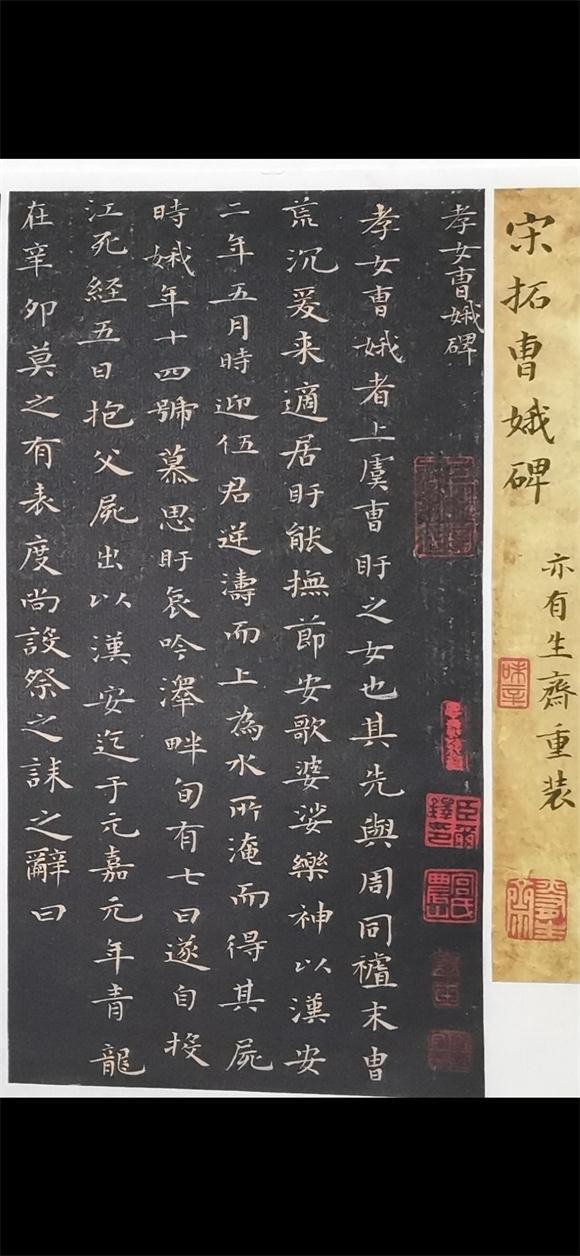 宋拓曹娥碑
亦有生齋重装
味辛
孝女曹娥碑
孝女曹娥者上虞曹盱之女也其先與周同禮末曹
荒沉爰来適居盱能撫節安歌婆娑樂神以漢安
二年五月時迎伍君逆濤而上為水所淹而得其屍
時娥年十四號慕思盱哀吟澤畔旬有七日遂自投
江死経五日抱父屍出以漢安迄于元嘉元年青龍
在辛卯莫之有表度尚設祭之誄之辭曰